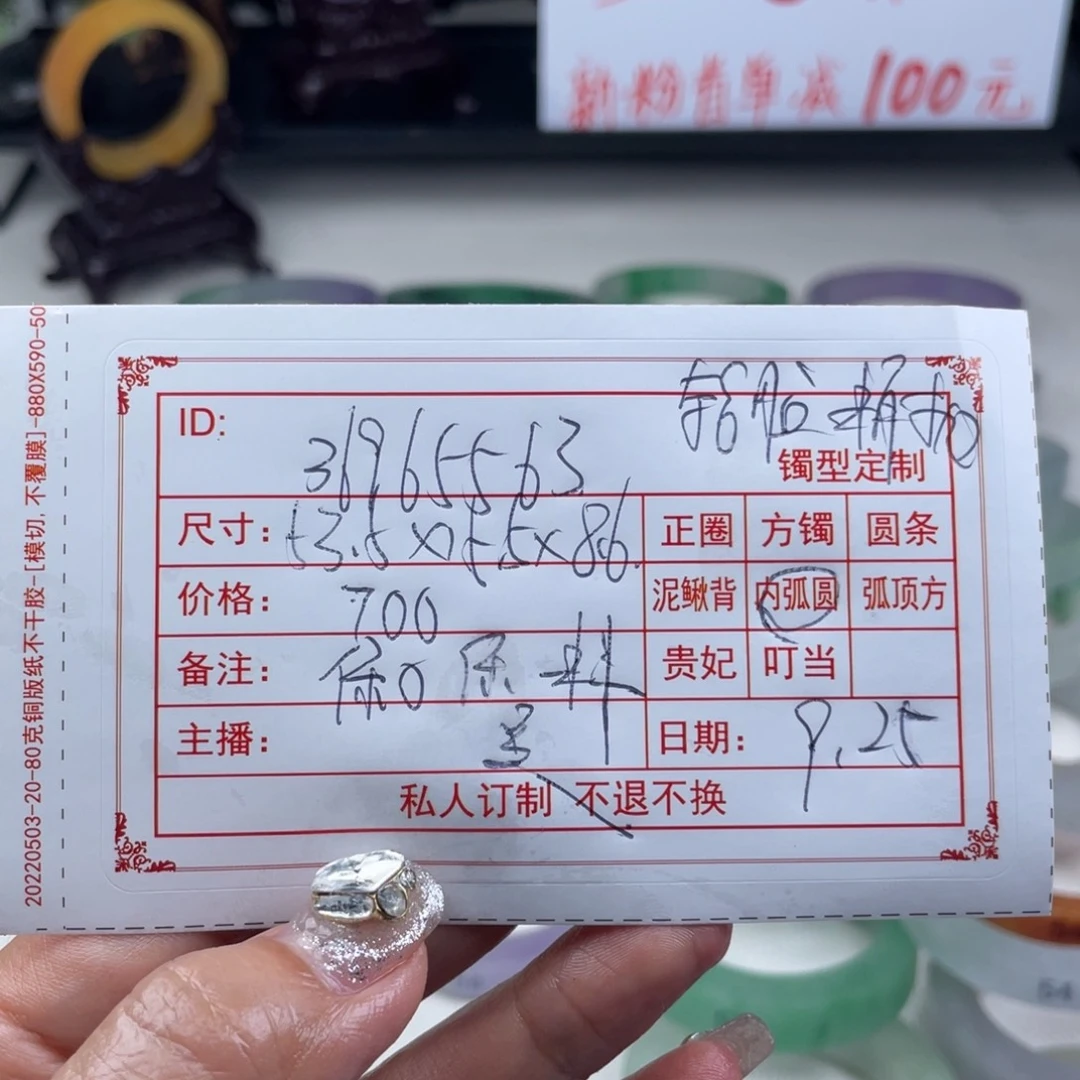 新粉首单减100元
20220503-20-80克铜版纸不干胶-[模切,不覆膜]-880X590-50
ID: 36965563
镯型定制
尺寸: 正圈 方镯 圆条
价格: 700 泥鳅背 内弧圆 弧顶方
备注: 贵妃 叮当
主播: 日期: 9.25
私人订制 不退不换
54